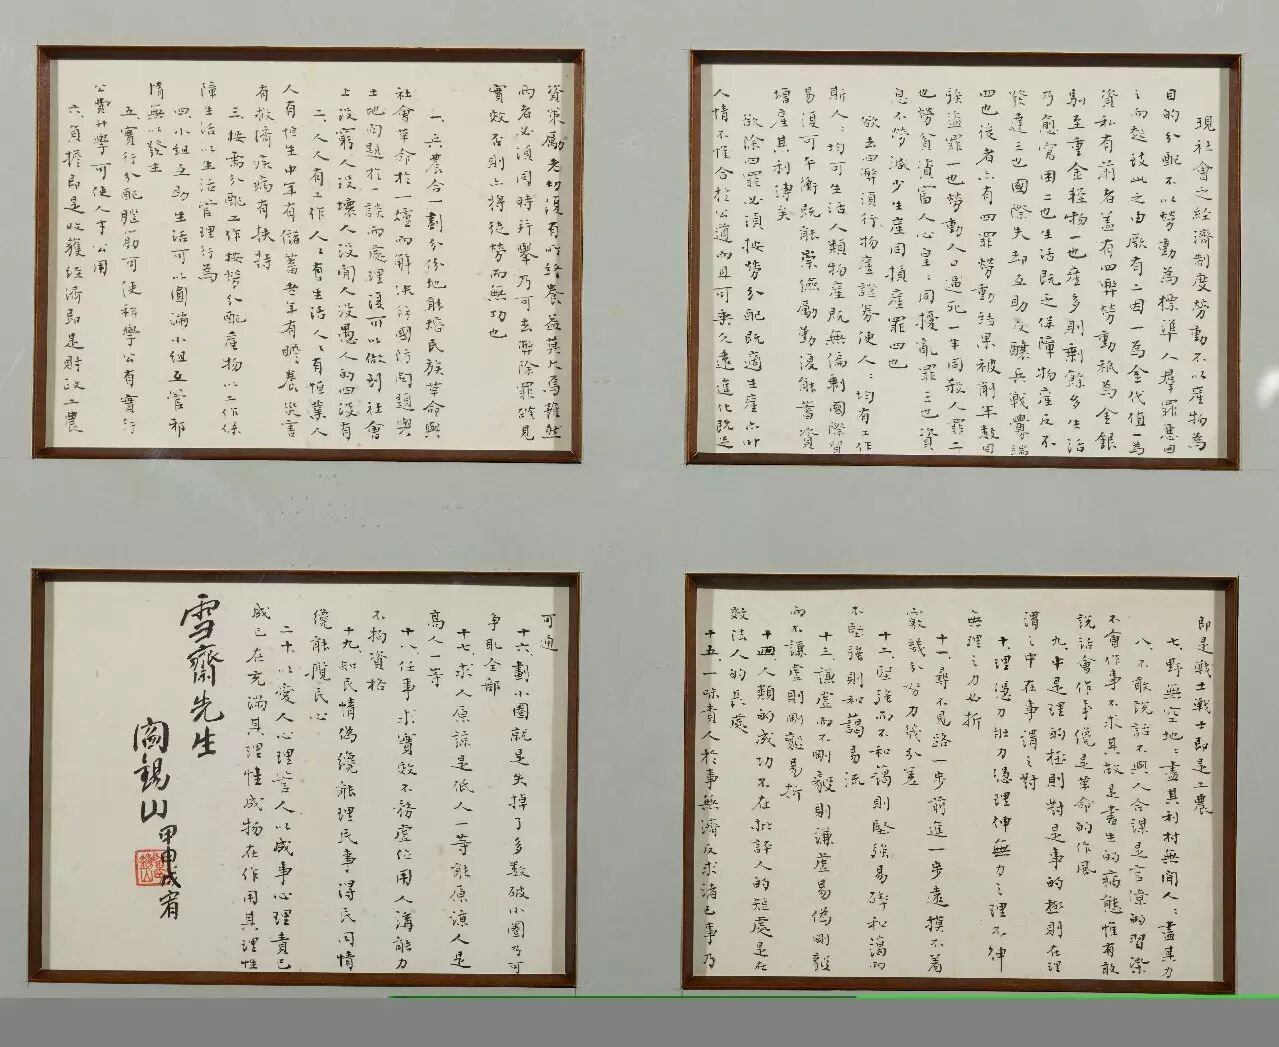 現社會之經濟制度勞動不以產物為
目的分配不以勞動為標準人羣罪惡因
之而起誌此之由厥有二因一為金代值一為
資私有前者蓋有四弊勞動祇為金銀
馴至重金輕物一也產多則剩餘多生活
乃愈窘困二也生活既乏保障物產反不
發達三也國際失却互助反釀兵戰釁端
四也後者亦有四罪勞動結果被削半數同
強盜罪一也勞動人口逼死一半同殺人罪二
也勞貧資富人心皇皇同擾亂罪三也資
息不勞減少生產同損產罪四也
欲去四弊須行物產證券使人人均有工作
斯人人均可生活人類物產既無偏剩國際貿
易復可平衡既能崇德勵勤復能蓄資
增產其利溥矣
欲除四罪必須按勞分配既適生產亦叶
人情不惟合於公道而且可垂久遠進化既造
資策勵老幼復有所終養益莫大焉雖然
兩者必須同時並舉乃可去弊除罪確見
實效否則亦將徒勞而無功也
一、兵農合一劃分份地能熔民族革命與
社會革命於一爐而解決行國防問題與
土地問題於一談而處理復可以做到社會
上沒窮人沒壞人沒閒人沒愚人的四沒有
二、人人有工作人人有生活人人有恒業人
人有恒生中年有儲蓄老年有瞻養災害
有救濟疾病有扶持
三、按需分配工作按勞分配產物以工作保
障生活以生活管理行為
四、小組互助生活可以圓滿小組互管邪
情無以發生
五、實行分配腦筋可使科學公有實行
公費升學可使人才公用
六、負擔即是收獲經濟即是財政工農
即是戰士戰士即是工農
七、野無空地地盡其利村無閒人人盡其力
八、不敢說話不與人合謀是官僚的習染
不會作事不求其故是書生的病態惟有敢
說話會作事纔是革命的作風
九、中是理的極則對是事的極則在理
謂之中在事謂之對
十、理憑力壯力憑理伸無力之理不伸
無理之力必折
十一、尋不見路一步前進一步遠摸不着
竅幾分努力幾分差
十二、堅強而不和藹則堅強易碎和藹而
不堅強則和藹易流
十三、謙虛而不剛毅則謙虛易偽剛毅
而不謙虛則剛毅易折
十四、人類的成功不在批評人的短處是在
效法人的長處
十五、一味責人於事無濟反求諸己事乃
可通
十六、劃小圈就是失掉了多數破小圈乃可
爭取全部
十七、求人原諒是低人一等能原諒人是
高人一等
十八、任事求實效不務虛位用人溝能力
不拘資格
十九、知民情偽纔能理民事得民同情
纔能攬民心
二十、以愛人心理管人以成事心理責己
成己在充滿其理性成物在作用其理性
雪齋先生
閻錫山 甲申戌宵